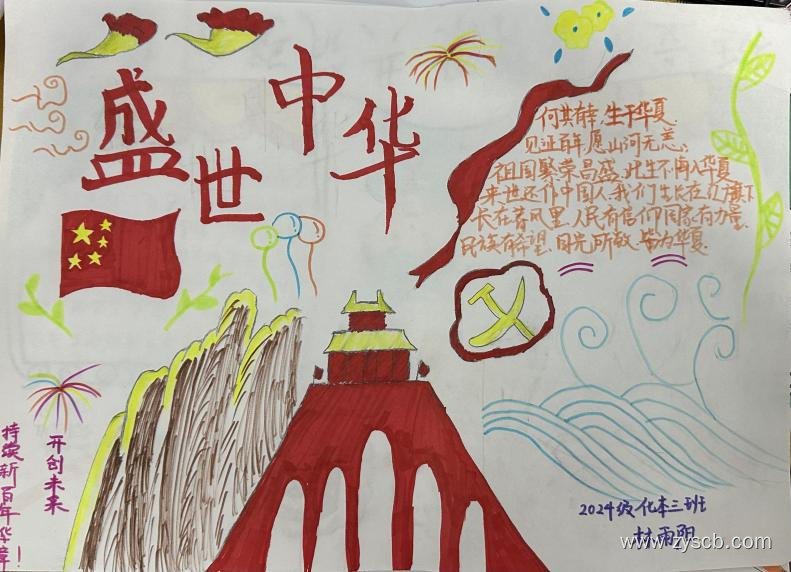 盛世
中华
何其有幸,生于华夏.
见证百年,愿山河无恙;
祖国繁荣昌盛,此生不悔入华夏
来世还作中国人,我们生长在红旗下
长在春风里.人民有信仰国家有力量.
民族有希望.目光所致,皆为华夏.
开创未来
持续新百年华章!
2024级化本三班
林雨阳
www.zyscb.com